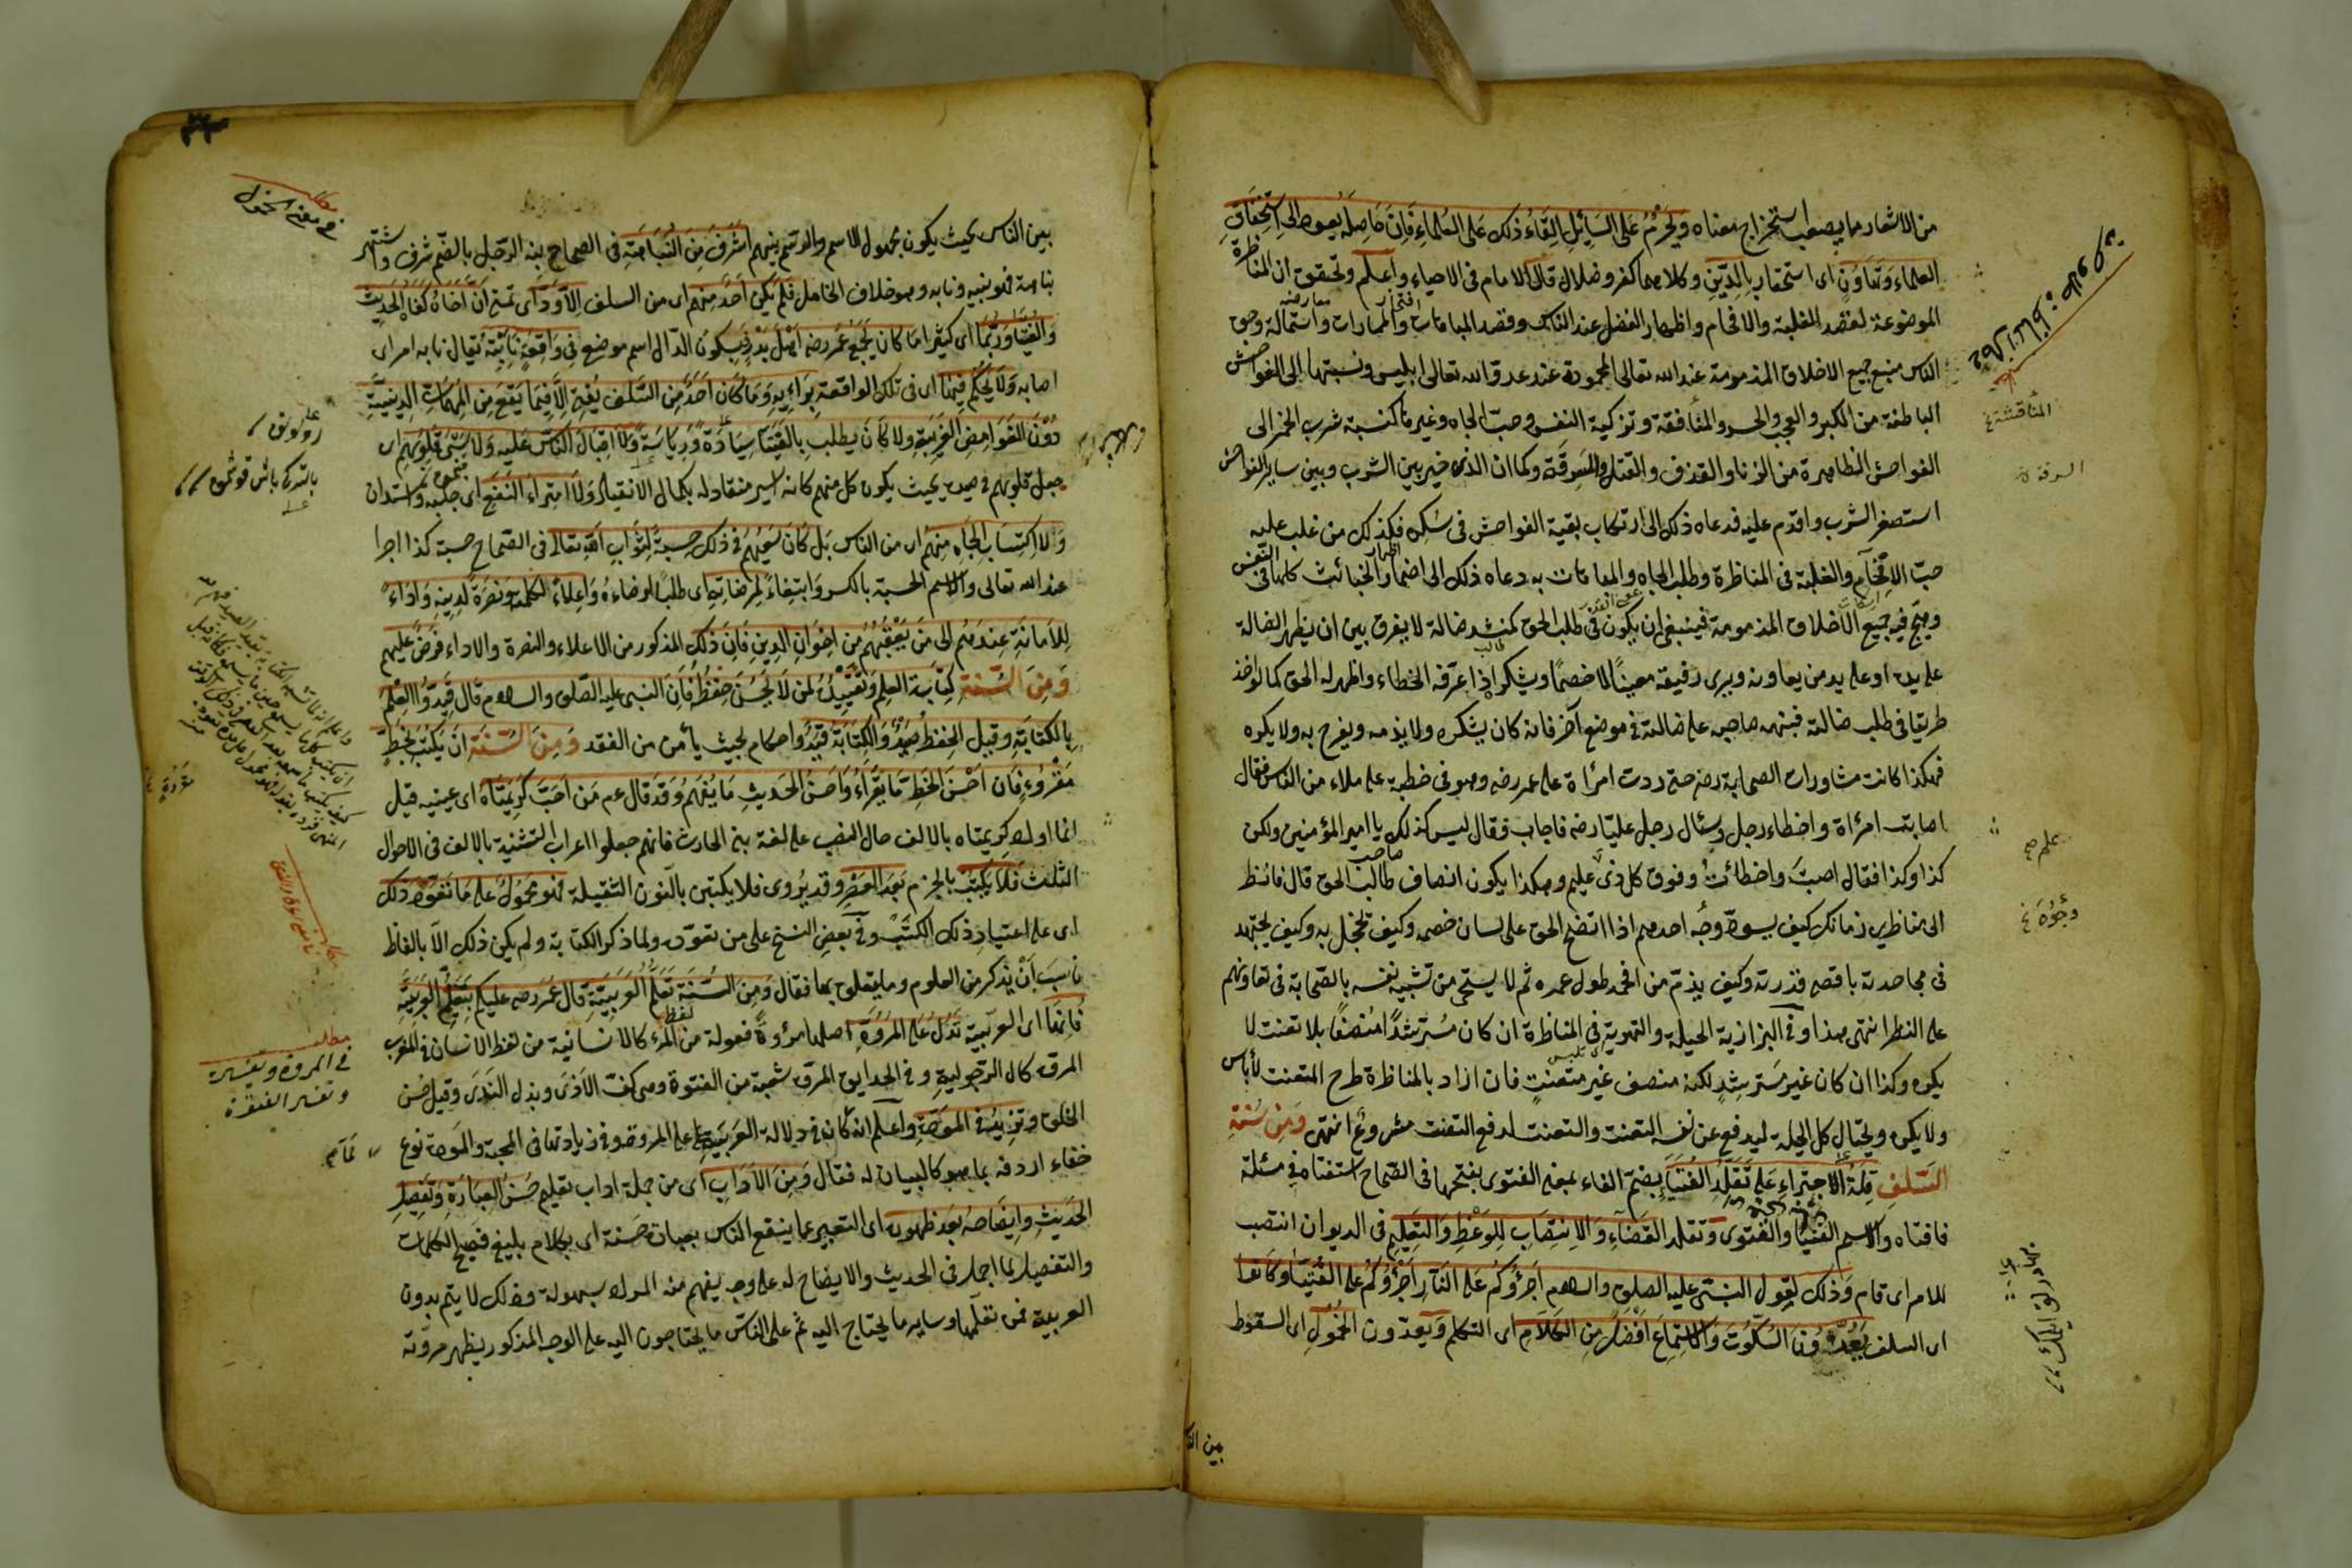 من الاشعار ما يصعب استخراج معناه ويحرم على السائل القاء ذلك على العلماء فان حاصله يعود الى استخفاف
العلماء وتهاون اى استحقار بالدين وكلاهما كفر وضلال قال الامام فى الاحياء واعلم وتحقق ان المناظرة
الموضوعة لقصد الغلبة والافحام واظهار الفضل عند الناس وقصد المباهات والممارات واستمالة وجوه
الناس منبع جميع الاخلاق المذمومة عند الله تعالى المحمودة عند عدو الله تعالى ابليس ونسبتها الى الفواحش
الباطنة من الكبر والعجب والحسد والمنافقة وتزكية النفس وحب الجاه وغيرها كنسبة شرب الخمر الى
الفواحش الظاهرة من الزنا والقذف والقتل والسرقة وكما ان الذى خير بين الشرب وبين ساير الفواحش
استصغر الشرب واقدم عليه فدعاه ذلك الى ارتكاب بقية الفواحش فى سكره فكذلك من غلب عليه
حب الافحام والغلبة فى المناظرة وطلب الجاه والمباهات به دعاه ذلك الى اضمار الخبائث كلها فى النفس
وهيج فيه جميع الاخلاق المذمومة فينبغى ان يكون فى طلب الحق كمنشد ضالة لا يفرق بين ان يظهر الضالة
على يده او على يد من يعاونه ويرى رفيقه معينا لا خصما ويشكر اذا عرفه الخطاء واظهر له الحق كما لو اخذ
طريقا فى طلب ضالته فنبهه صاحبه على ضالته فى موضع آخر فانه كان يشكره ولا يذمه ويفرح به ولا يكره
فهكذا كانت مشاورات الصحابة رضه حتى ردت امرأة على عمر رضه وهو فى خطبة على ملاء من الناس فقال
اصابت امرأة واخطاء رجل وسئال رجل عليا رضه فاجاب فقال ليس كذلك يا امير المؤمنين ولكن
كذا وكذا فقال اصبت واخطائت وفوق كل ذى عليم وهكذا يكون انصاف طالب الحق قال فانظر
الى مناظرى زمانك كيف يسود وجه احدهم اذا اتضح الحق على لسان خصمه وكيف يخجل به وكيف يجتهد
فى مجاهدته باقصى قدرته وكيف يذم من افحمه طول عمره ثم لا يستحى من تشبيه نفسه بالصحابة فى تعاونهم
على النظر انتهى هذا وفى البزازية الحيلة والتمويه فى المناظرة ان كان مسترشدا منصفا بلا تعنت لا
يكره وكذا ان كان غير مسترشد لكنه منصف غير متعنت فان اراد بالمناظرة طرح المتعنت لا بأس
ولا يكره ويحتال كل الحيلة ليدفع عن نفسه التعنت والتعنت لدفع التعنت مشروع انتهى ومن سنة
السلف قلة الاجتراء على تقلد الفتيا بضم الفاء بمعنى الفتوى بفتحها فى الصحاح استفتاه فى مسئلة
فافتاه والاسم الفتيا والفتوى وتقلد القضاء والانتصاب للوعظ والتعليم فى الديوان انتصب
للامر اى قام وذلك لقول النبى عليه الصلوة والسلام اجرؤكم على النار اجرؤكم على الفتيا وكانوا
اى السلف يعدون السكوت والاستماع افضل من الكلام اى التكلم ويعدون الخمول اى السقوط
بين الناس
المناقشة
السرقة
علم صح
وجوه
بين الناس بحيث يكون مجهول الاسم والرسم بينهم اشرف من النباهة فى الصحاح نبه الرجل بالضم شرف واشتهر
نباهة فهو نبيه ونابه وهو خلاف الخامل فلم يكن احد منهم اى من السلف الا ود اى تمنى ان اخاه كفاه الحديث
والفتيا وربما اى كثيرا ما كان يجمع عمر رضه اهل بدر بسكون الدال اسم موضع فى واقعة نائبة يقال نابه امر اى
اصابه ولا يحكم فيها اى فى تلك الواقعة برايه وما كان احد من السلف يفتى الا فيما يقع من المهمات الدينية
دون الغوامض الغريبة ولا كان يطلب بالفتيا سيادة ورياسة ولا اقبال الناس عليه ولا سبى قلوبهم اى
جعل قلوبهم فى صيده بحيث يكون كل منهم كانه اسير منقاد له بكمال الانقياد ولا امتراء النفع اى جلبه واستدان
ولا اكتساب الجاه منهم اى من الناس بل كان سعيهم فى ذلك حسبة لثواب الله تعالى فى الصحاح حسبة كذا اجرا
عند الله تعالى والاسم الحسبة بالكسر وابتغاء لمرضاته اى طلبا لرضاءه واعلاء لكلمته ونصرة لدينه واداء
للامانة عندهم الى من يعقبهم من اخوان الدين فان ذلك المذكور من الاعلاء والنصرة والاداء فرض عليهم
ومن السنة كتابة العلم وتقييده لمن لا يحسن حفظه فان النبى عليه الصلوة والسلام قال قيدوا العلم
بالكتابة وقيل الحفظ صيد والكتابة قيد واحكام بحيث يأمن من الفقد ومن السنة ان يكتب بخط
مقروء فان احسن الخط ما يقراء واحسن الحديث ما يفهم وقد قال عم من احب كريمتاه اى عينيه قيل
انما اورد كريمتاه بالالف حال النصب على لغة بنى الحارث فانهم جعلوا اعراب التثنية بالالف فى الاحوال
الثلث فلا يكتب بالجزم بعد العصر وقد يروى فلا يكتبن بالنون الثقيلة فهو محمول على ما تعود ذلك
اى على اعتياد ذلك الكتب وفى بعض النسخ على من تعود ولما ذكر الكتابة ولم يكن ذلك الا بالفاظ
ناسب ان يذكر من العلوم وما يتعلق بها فقال ومن السنة تعلم العربية قال عمر رضه عليكم بتعلم العربية
فانها اى العربية تدل على المروة اصلها مروءة فعولة من المرء كالانسانية من لفظ الانسان فى المغرب
المروة كمال الرجولية وفى الحدايق المروة شعبة من الفتوة وهى كف الاذى وبذل الندى وقيل حسن
الخلق وتزيد فى المودة واعلم انه كان فى دلالة العربية على المروة وفى زيادتها فى المحبة والمودة نوع
خفاء اردفه بما هو كالبيان له فقال ومن الآداب اى من جملة اداب تعليم حسن العبارة وتفصيل
الحديث وايضاحه بعد ظهوره اى التعبير عما ينفع الناس بعبارة حسنة اى بكلام بليغ فصيح الكلمات
والتفصيل لما اجمل فى الحديث والايضاح له على وجه يفهم منه المراد بسهولة وذلك لا يتم بدون
العربية فمن تعلمها وساير ما يحتاج اليه ثم علم الناس ما يحتاجون اليه على الوجه المذكور يظهر مروته
فى معنى الخمول
مطلب
فى المروة وتفسيره
وتفسير الفتوة